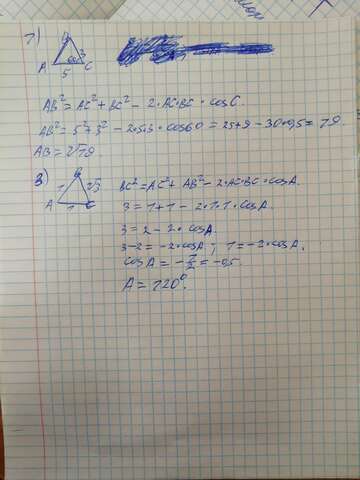 1)
B
3
60
A 5 C
AB² = AC² + BC² - 2·AC·BC·cosC.
AB² = 5² + 3² - 2·5·3·cos60 = 25+9 - 30·0,5 = 19.
AB = √19.
3)
B
1 √3
A 1 C
BC² = AC² + AB² - 2·AC·BC·cosA.
3 = 1+1 - 2·1·1·cosA.
3 = 2 - 2·cosA.
3-2 = -2·cosA; 1 = -2·cosA.
cosA = -1/2 = -0,5.
A = 120°.